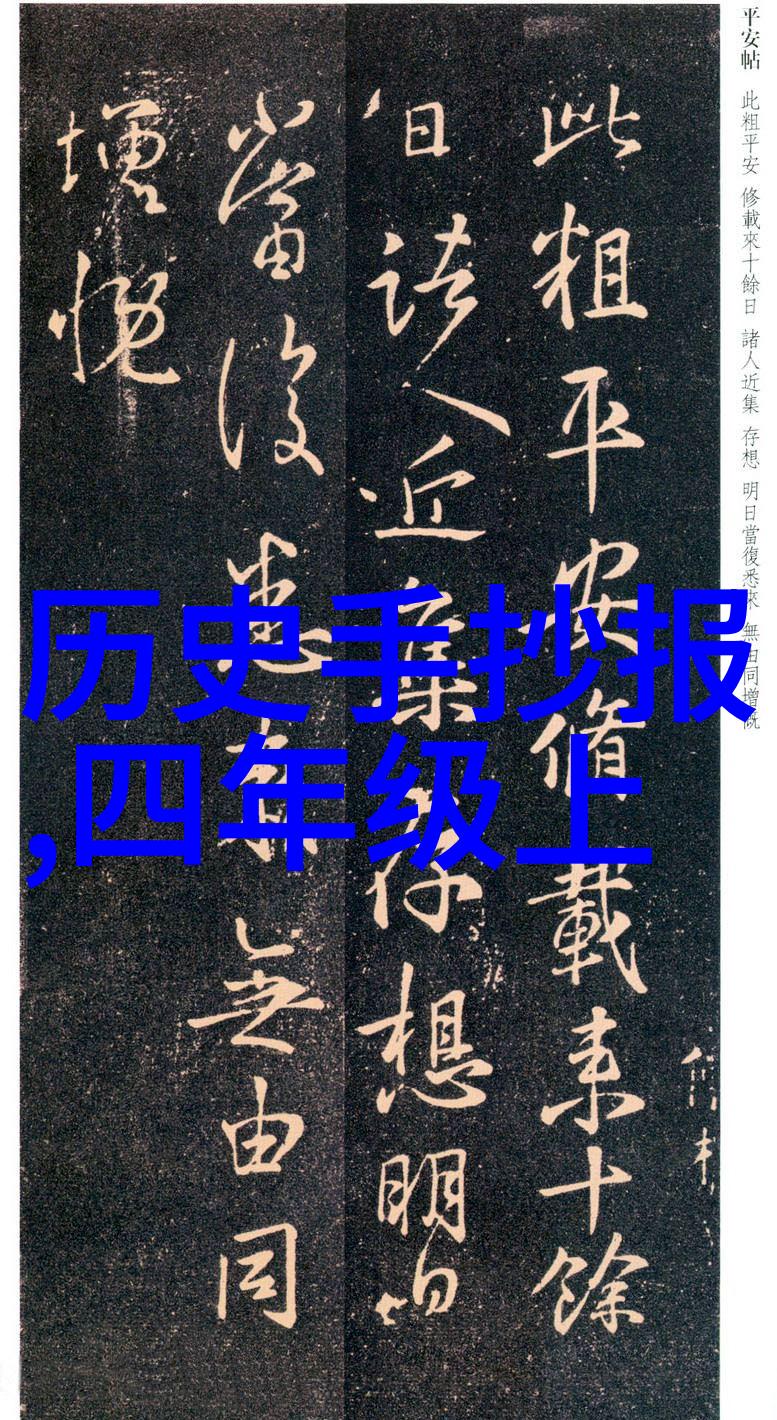 平安帖 此粗平安 修載來十餘日 諸人近集 存想 明日當復悉來 無由同增慨
此粗平安脩載来十餘
日諸人近集存想明日
當復悉来無由同
增慨
历史手抄报
,四年级上